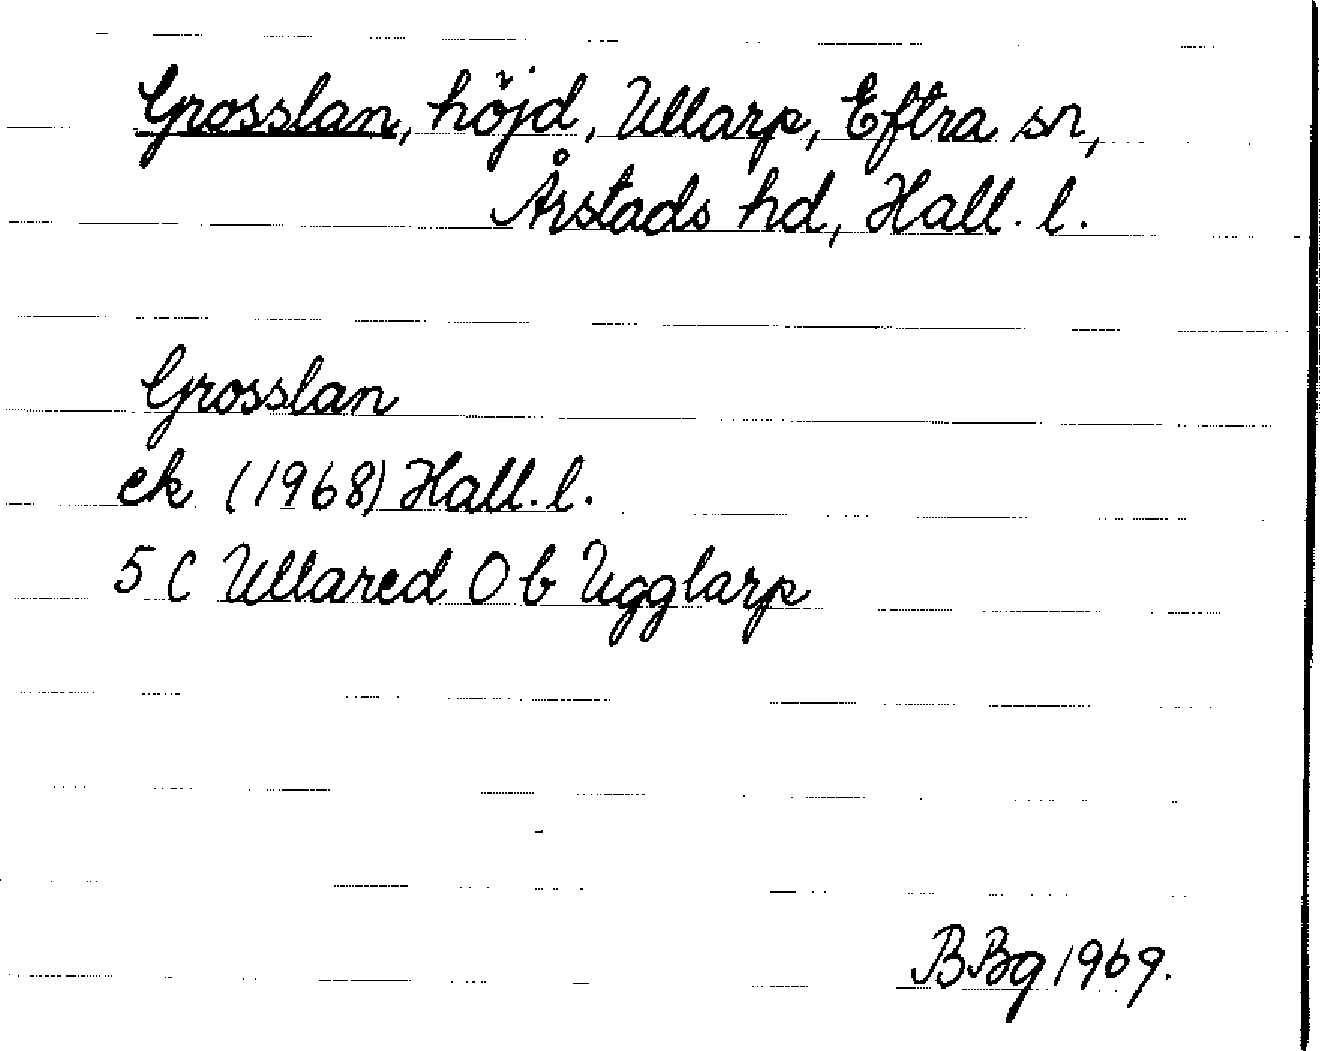 Grosslan, höjd, Ullarp, Eftra sn,
Årstads hd, Hall. l.
Grosslan
ek (1968) Hall. l.
5 C Ullared O b Ugglarp
BBg 1969.